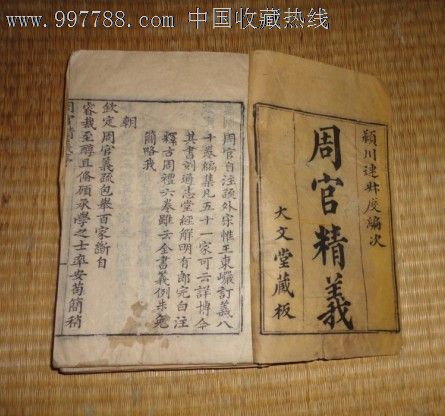 www.997788.com 中国收藏热线
頴川連叔度編次
周官精義
大文堂藏板
周官自注疏外宋惟王東巖訂義八
十卷編集凡五十一家可云詳博今
其書刻通志堂經解明有郎完白注
釋古周禮六卷雖云全書義例未免
簡略我
朝
欽定周官義疏包舉百家斷自
睿裁至醇且備顧承學之士率安苟簡稍
周官精義